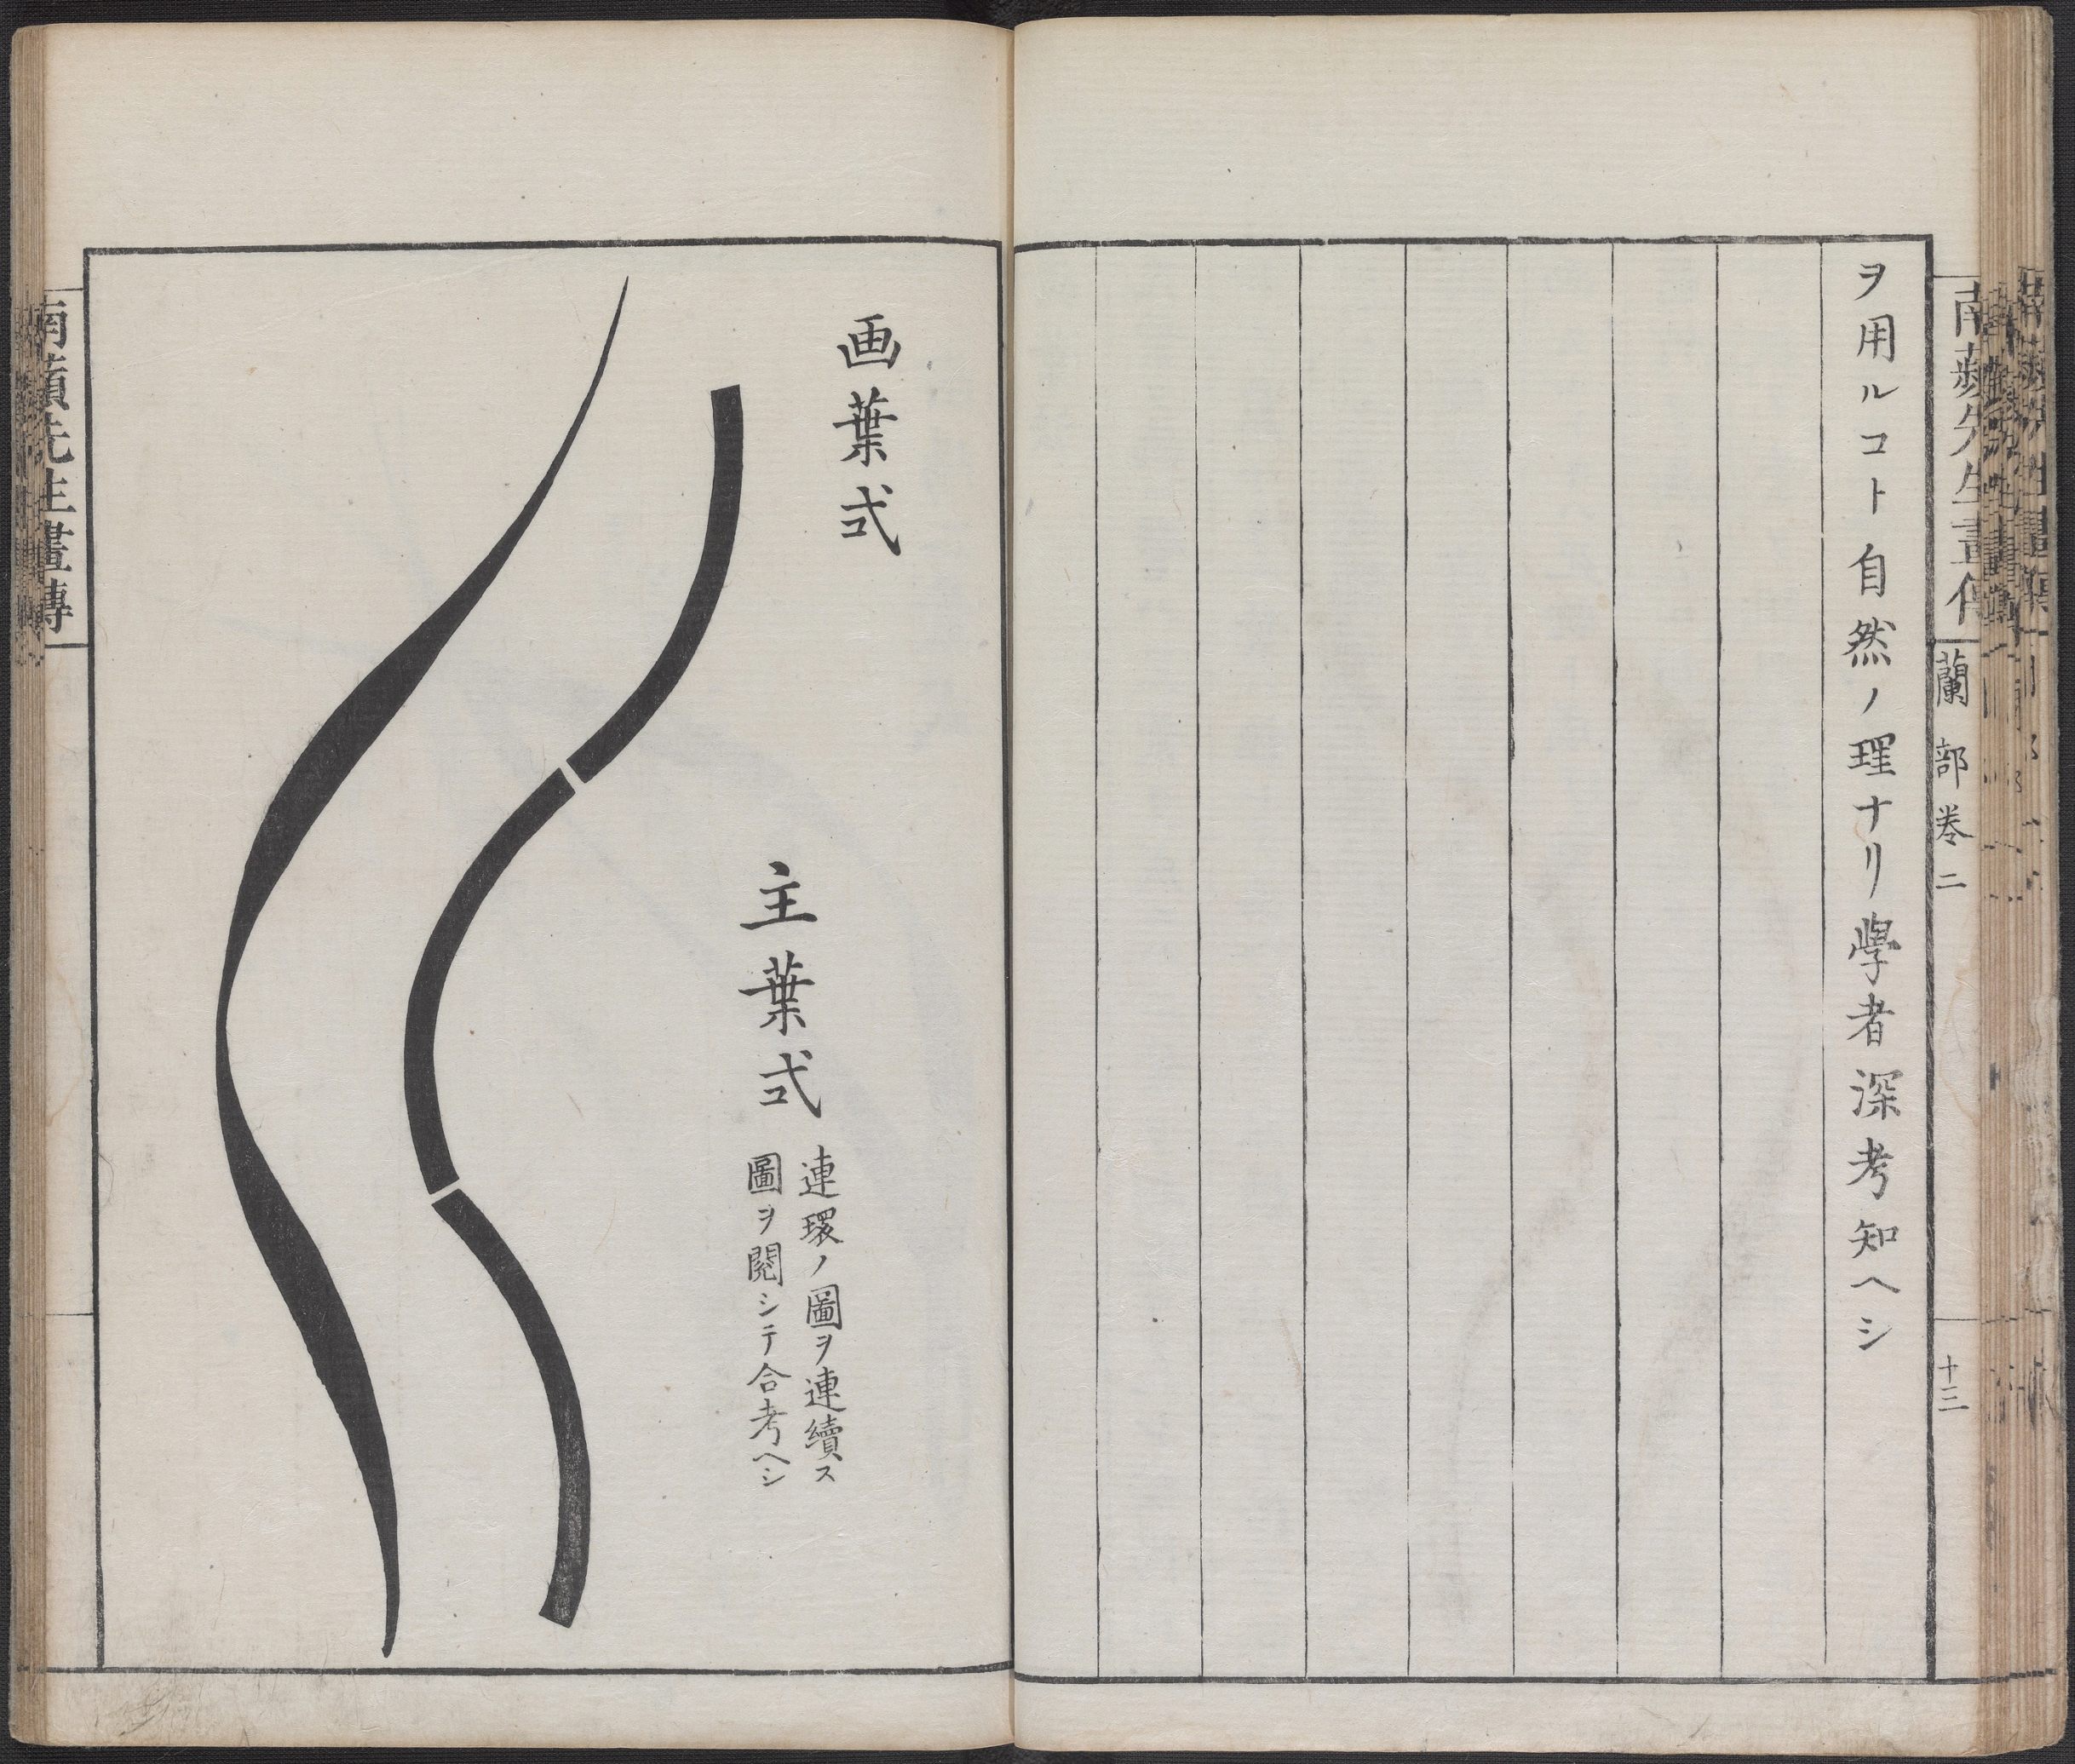 ヲ用ルコト自然ノ理ナリ學者深考知ヘシ
蘭部巻二
十三
画葉式
主葉式
連環ノ圖ヲ連續ス
圖ヲ閲シテ合考ヘシ
先生畫傳